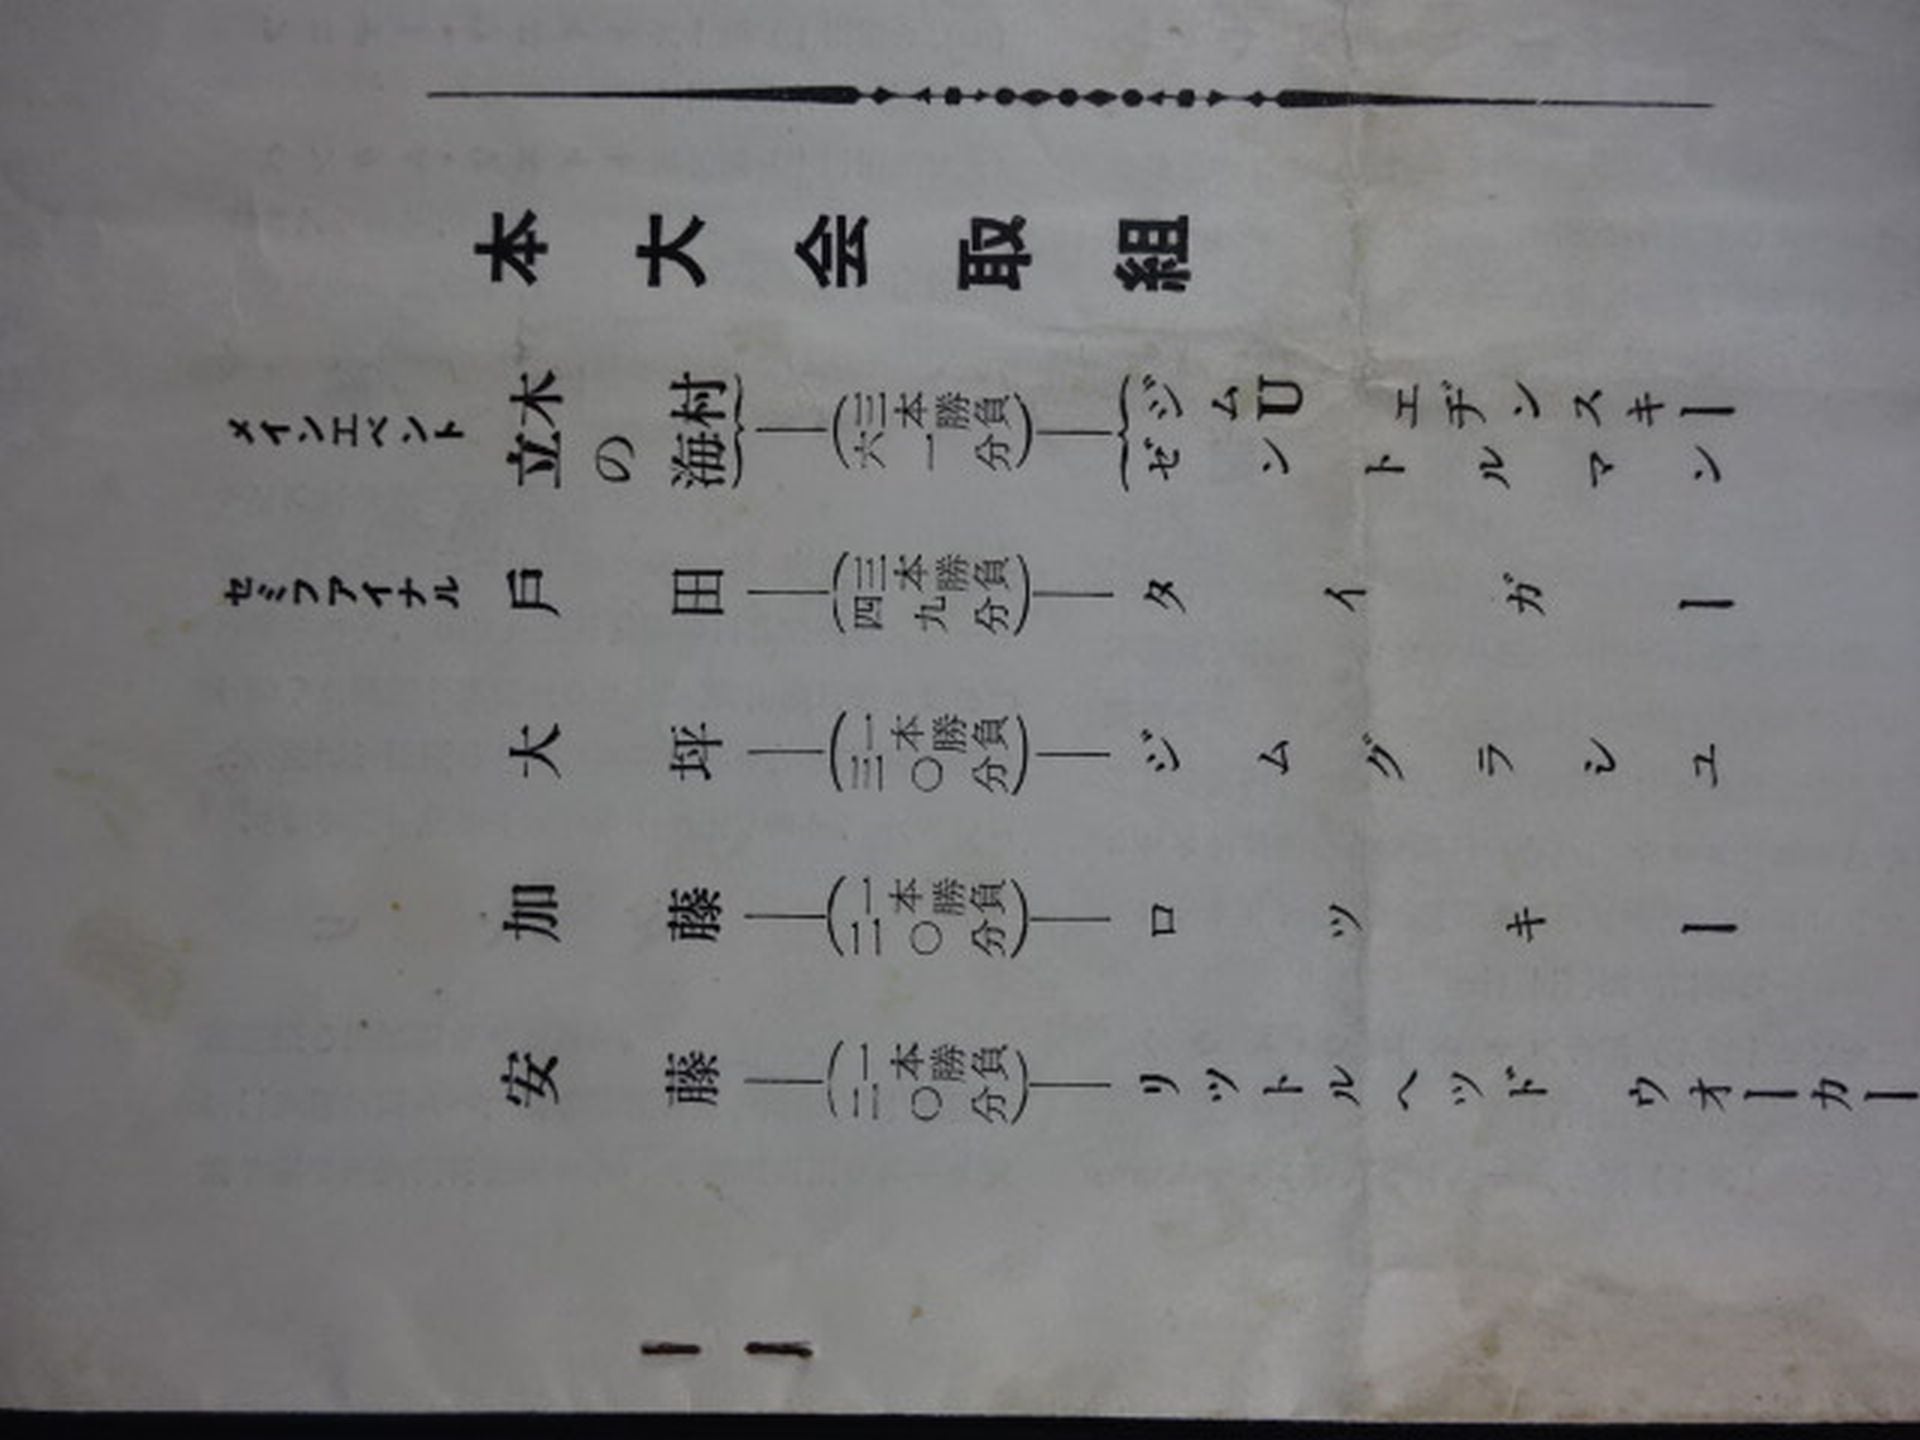 本大会取組
メインエベント
木村
立の海
三本勝負
六一分
ジムUエヂンスキー
ゼントルマン
セミファイナル
戸田
三本勝負
四九分
タイガー
大坪
一本勝負
三〇分
ジムグラシユ
加藤
一本勝負
二〇分
ロツキー
安藤
一本勝負
二〇分
リツトルヘツド ウオーカー